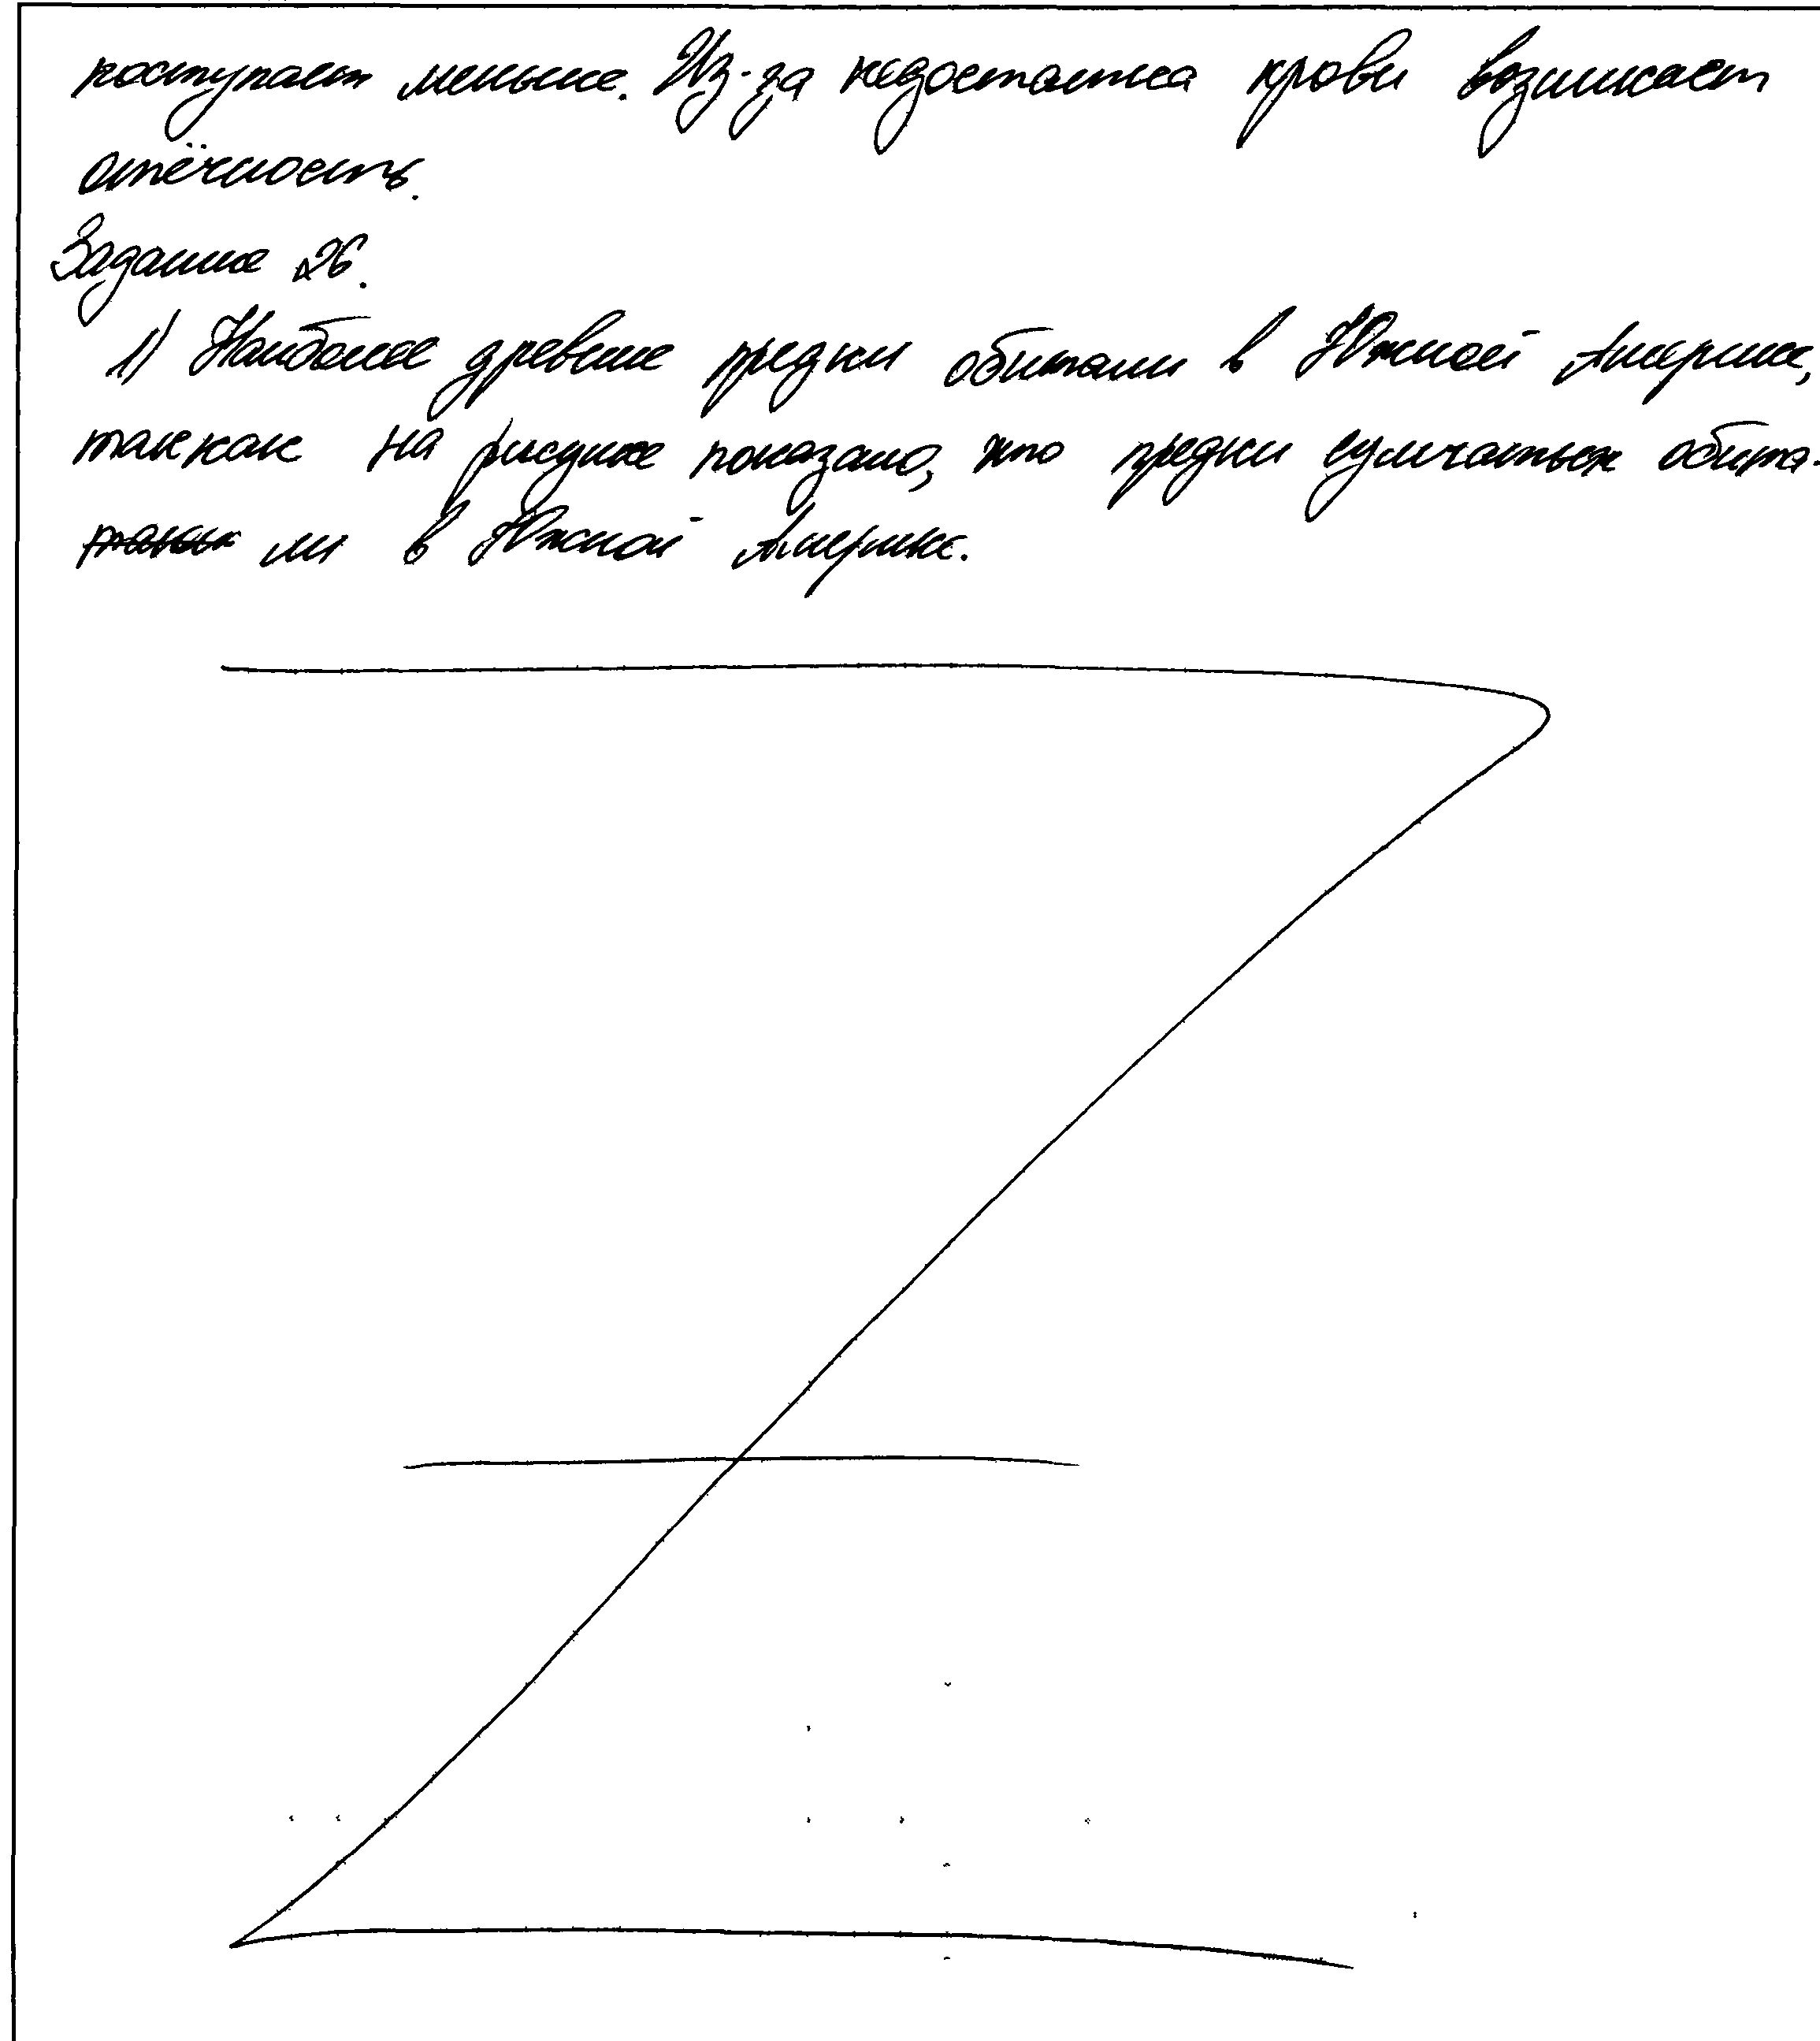 поступает меньше. Из-за недостатка крови возникает
отёчность.
Задание 26.
1) Наиболее древние предки обитали в Южной Америке,
так как на рисунке показано, что предки сумчатых обита-
ли в Южной Америке.